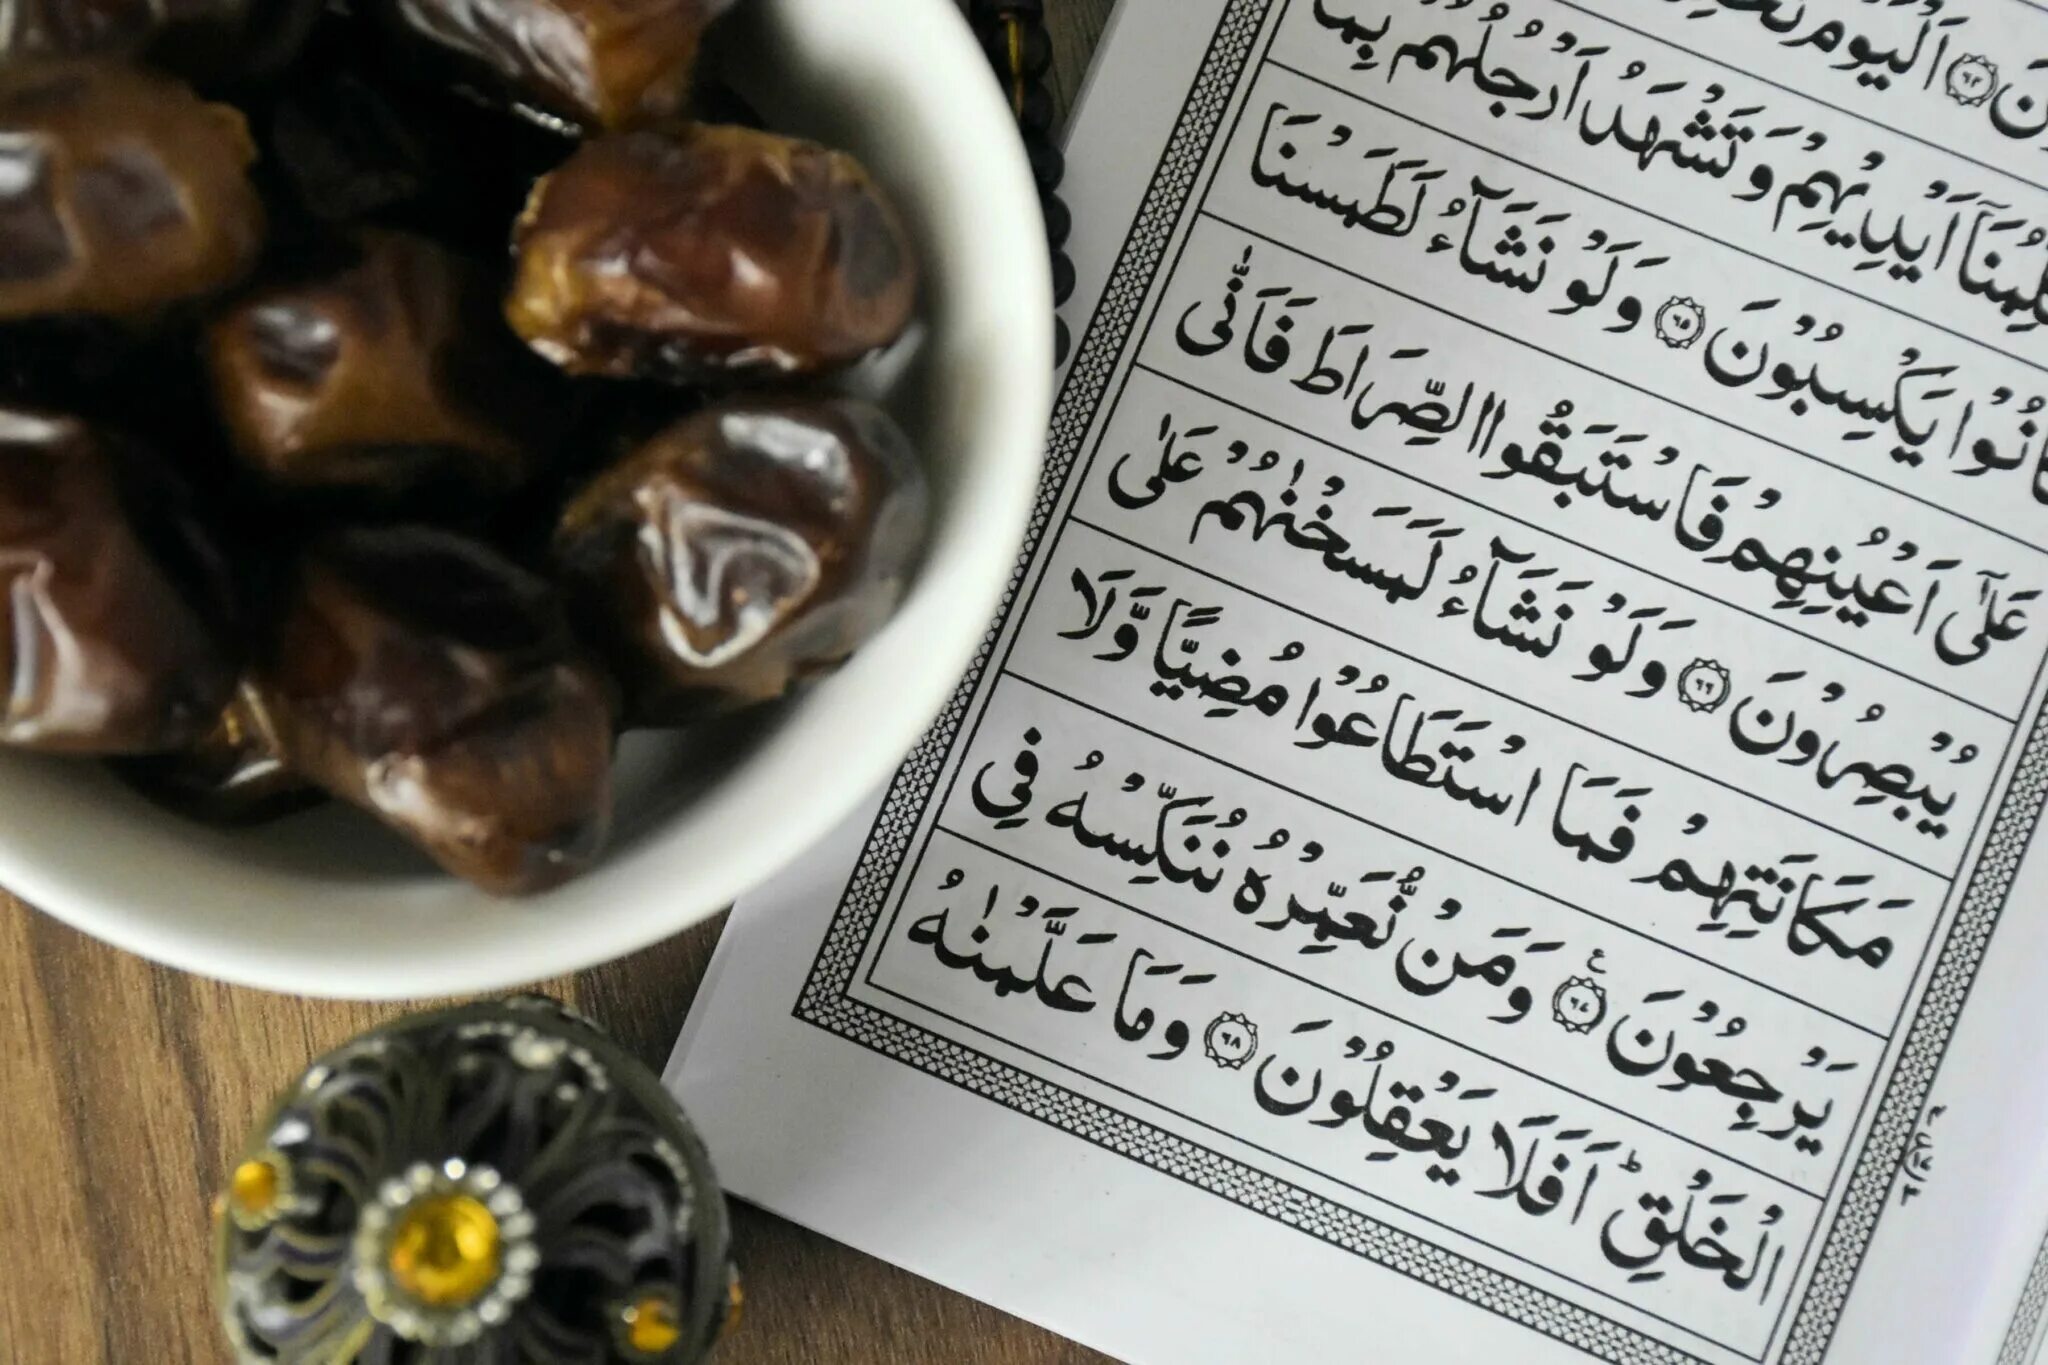 نَ ﴿۶۴﴾ اَلْيَوْمَ
اَيْدِيْهِمْ وَتَشْهَدُ اَرْجُلُهُمْ بِمَا
كَانُوْا يَكْسِبُوْنَ ﴿۶۵﴾ وَلَوْ نَشَآءُ لَطَمَسْنَا
عَلٰٓى اَعْيُنِهِمْ فَاسْتَبَقُوا الصِّرَاطَ فَاَنّٰى
يُبْصِرُوْنَ ﴿۶۶﴾ وَلَوْ نَشَآءُ لَمَسَخْنٰهُمْ عَلٰى
مَكَانَتِهِمْ فَمَا اسْتَطَاعُوْا مُضِيًّا وَّلَا
يَرْجِعُوْنَ ﴿۶۷﴾ ع وَمَنْ نُّعَمِّرْهُ نُنَكِّسْهُ فِي
الْخَلْقِ ؕ اَفَلَا يَعْقِلُوْنَ ﴿۶۸﴾ وَمَا عَلَّمْنٰهُ